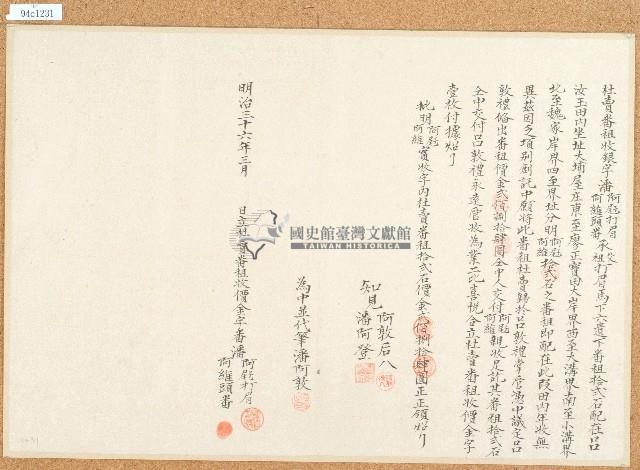 94c1231
杜賣番租收銀字潘阿敦打眉阿維頭番承父祖打眉馬下六遺下番租拾弍石配在呂
汝玉田內坐址大埔屋庄東至廖正寶田大岸界西至大溝界南至小溝界
北至魏家岸界四至界址分明阿敦阿維拾弍石之番租即配在此段田內年收無
異茲因乏項別創託中願將此番租杜賣歸於呂敦禮掌管憑中議定呂
敦禮備出番租價金弍佰捌拾肆圓仝中人交付阿敦阿維親收足訖其番租拾弍石
仝中交付呂敦禮永遠管收為業二比喜悅合立杜賣番租收價金字
壹枚付據炤
批明阿敦阿維實收字內杜賣番租拾弍石價金弍佰捌拾肆圓正正領炤
知見 阿敦后八
潘阿登
為中並代筆潘阿敦
明治三十六年三月 日立杜賣番租收價金字番潘阿敦打眉
阿維頭番
國史館臺灣文獻館
TAIWAN HISTORICA